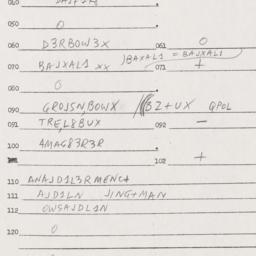 050 0
060 D3RBOW3X 061 0
)BAXAL1 = BAJXAL1
070 BAJXAL1 XX 071 +
0
090 GROJSN,BOWX 3Z+UX QPOL
091 TRE,L8BUX 092 —
100 4MAG83R3R
102 +
110 ANAJD1L3RMENC+
111 AJD1LN JING+MAN
112 OWSAJDL1N
120 0